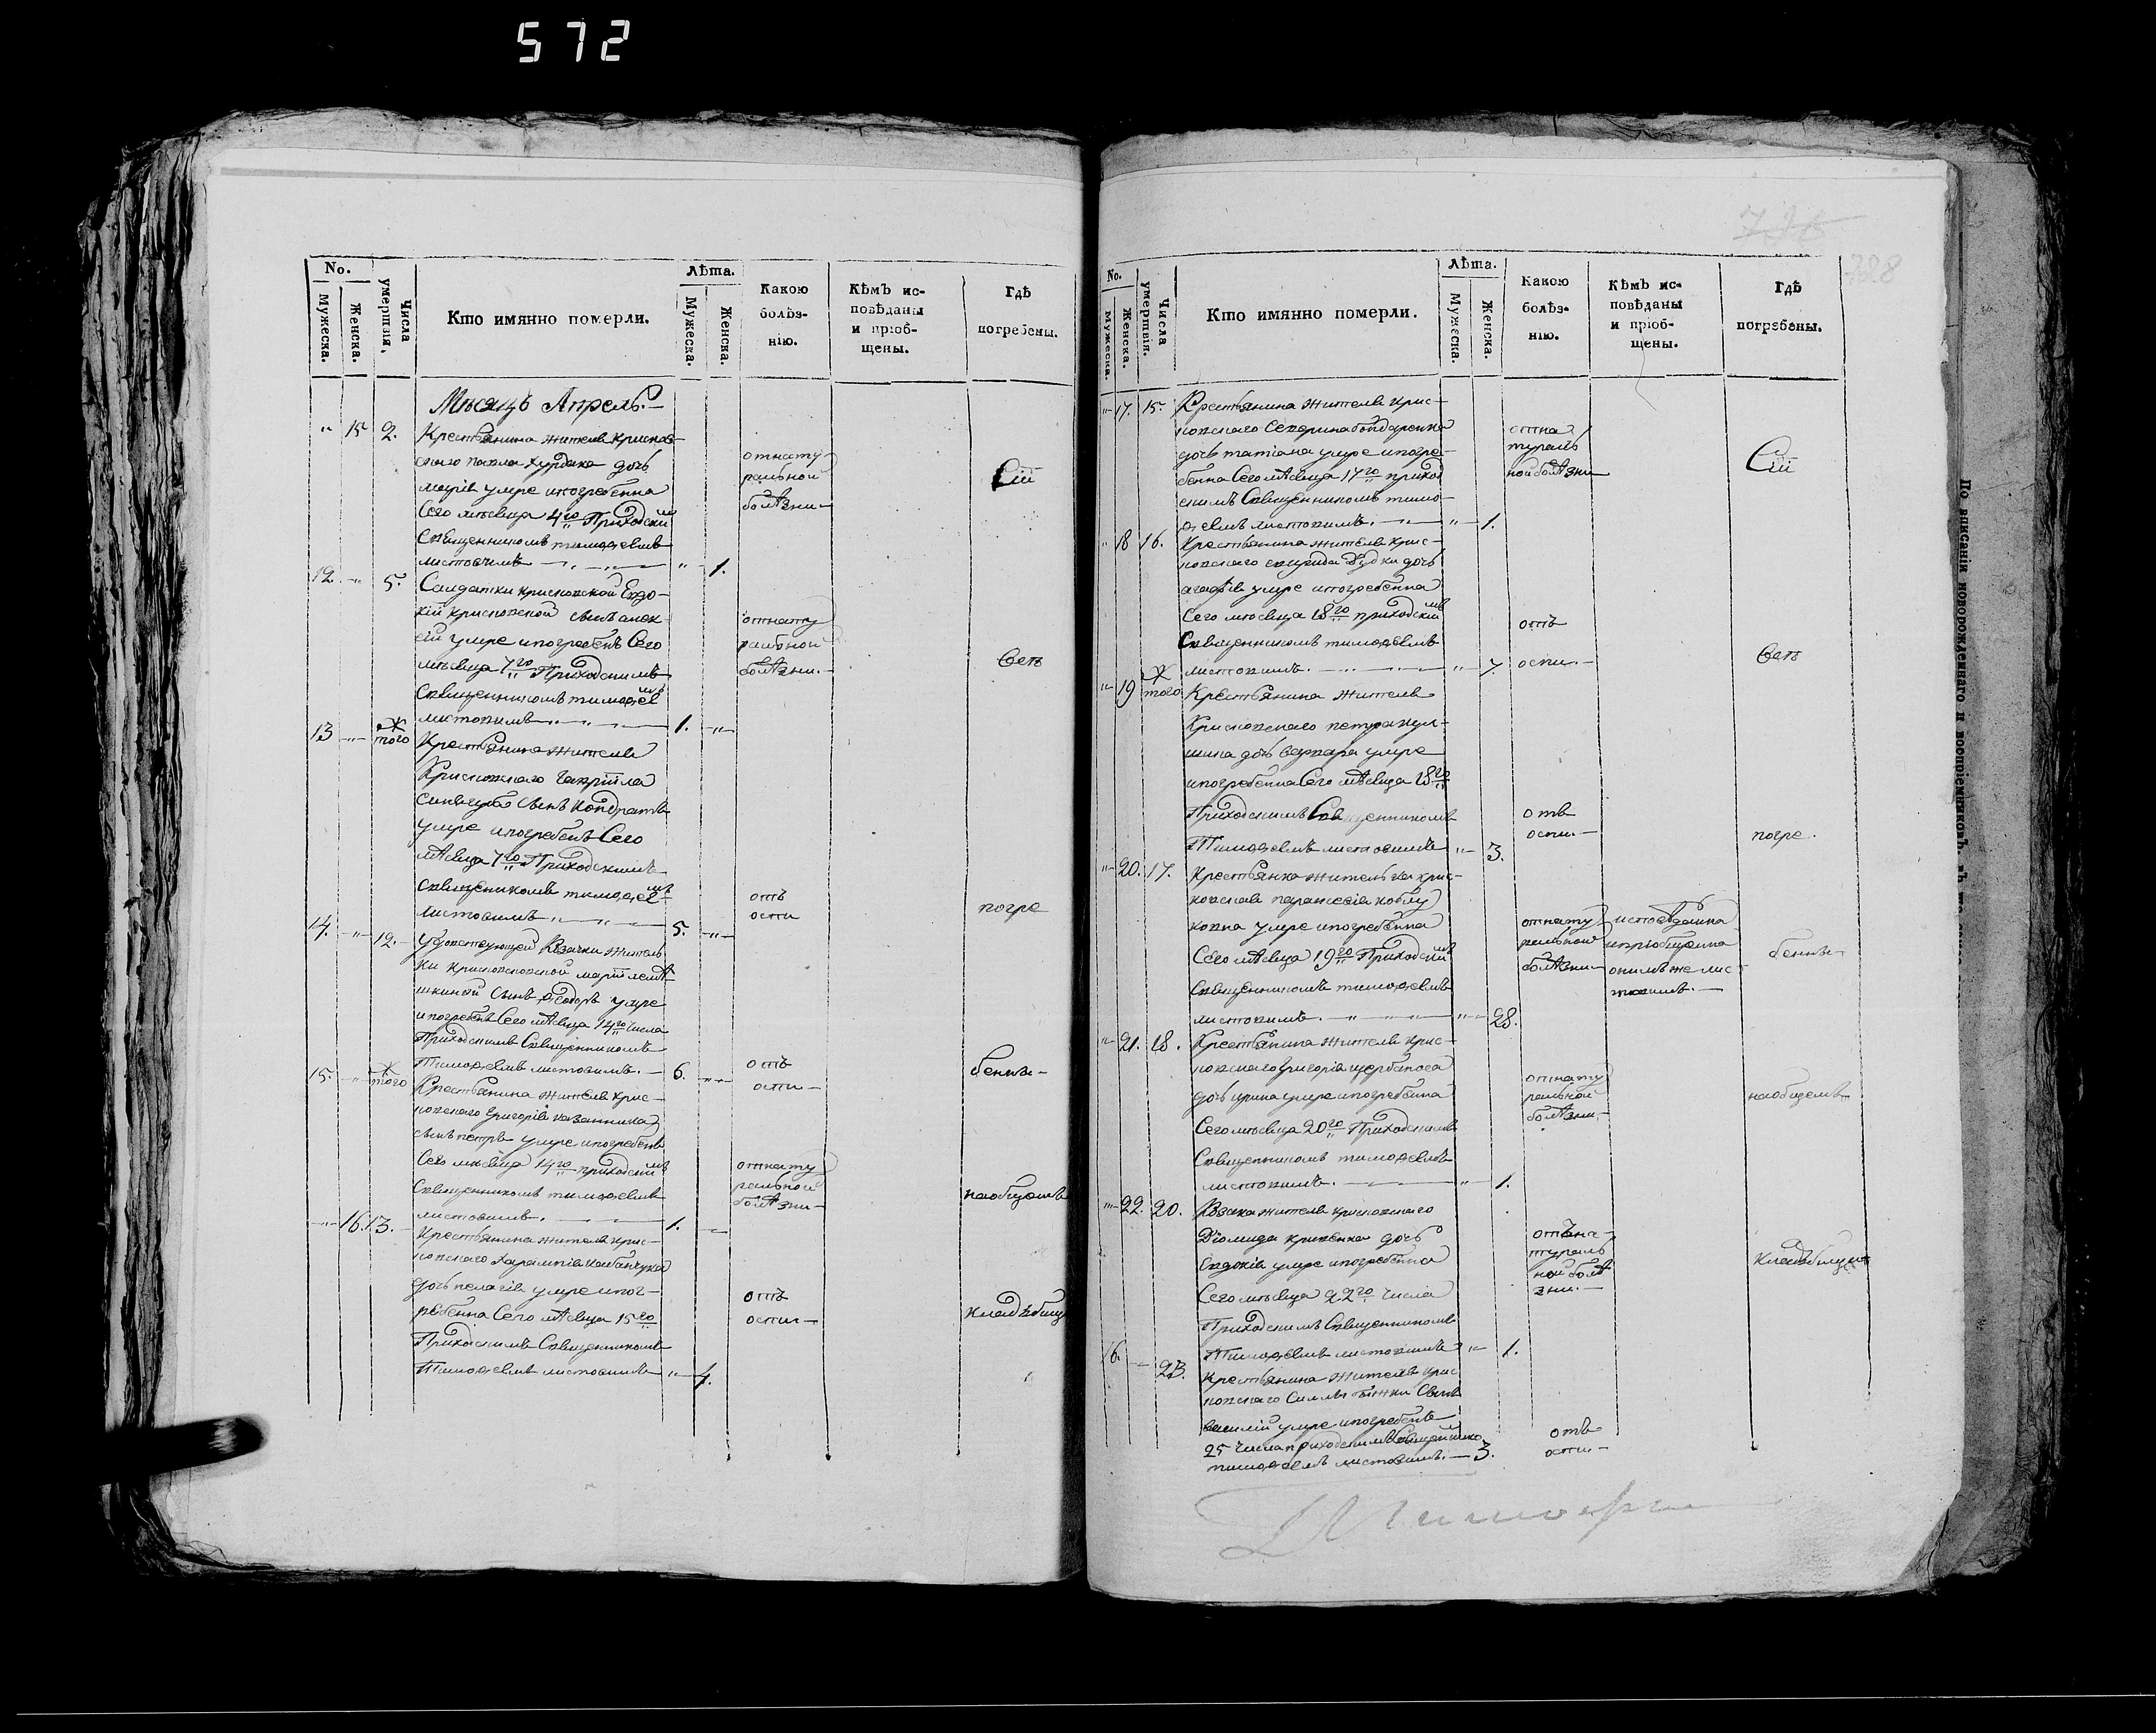 572
No.
Мужеска.
Женска.
Числа умертвія.
Кто имянно померли.
Лѣта.
Мужеска.
Женска.
Какою
болѣз-
нію.
Кѣмъ ис-
повѣданы
и пріоб-
щены.
Гдѣ
погребены.
Мѣсяцъ Апрель.
" 15 2. Крестьянина жителя криснов-
ского павла дочь
марія умре ипогребенна
Сего мѣсяца 4го Приходским
Священникомъ тимофеемъ
листовимъ " 1.
отнату
ральной
болѣзни
Сіи
12. " 5. Салдатки крисновской Евдо-
кіи крисновской сынъ алек-
сій умре ипогребенъ Сего
мѣсяца 7го Приходскимъ
Священникомъ тимофее мъ
листовимъ 1. "
отнату
ральной
болѣзни.
Всѣ
13 " того Крестьянина жителя
Крисновского Гавріила
сынъ Кондратъ
умре ипогребенъ Сего
мѣсяца 7го Приходскимъ
Священикомъ тимофеемъ
Листовимъ 5. "
отъ
оспи
погре
14. " 12. Козачки житель
ки крисновской маріи
шкиной Сынъ феодоръ умре
ипогребенъ Сего мѣсяца 14го числа
Приходскимъ Священникомъ
Тимофеемъ листовимъ. 6. "
отъ
оспи
бенны
15. " того Крестьянина жителя крис-
новского Григорія
сынъ петръ умре ипогребенъ
Сего мѣсяца 14го приходскимъ
Священникомъ тимофеемъ
листовимъ. 1.
отнату
ральной
болѣзни
наобщемъ
" 16. 13. Крестьянина жителя крис-
новского Харампія
дочь пелагія умре ипог-
ребенна Сего мѣсяца 15го
Приходскимъ Священникомъ
Тимофеемъ листовимъ " 4.
отъ
оспи
кладъбищ
728
No.
Мужеска.
Женска.
Числа умертвія.
Кто имянно померли.
Лѣта.
Мужеска.
Женска.
Какою
болѣз-
нію.
Кѣмъ ис-
повѣданы
и пріоб-
щены.
Гдѣ
погребены.
" 17. 15. Крестьянина жителя крис-
новского Северина бондаренка
дочь татіана умре ипогре-
бенна Сего мѣсяца 17го приход
скимъ Священникомъ тимо-
феемъ листовимъ. " 1.
отна
тураль
ной болѣзни
Сіи
" 18 16. Крестьянина жителя крис-
новского дочь
агафія умре ипогребенна
Сего мѣсяца 18го приходскимъ
Священникомъ тимофеемъ
листовимъ. " 7.
отъ
оспи.
Всѣ
" 19 того Крестьянина жителя
Крисновского петра
дочь варвара умре
ипогребенна Сего мѣсяца 18го
Приходскимъ Священникомъ
Тимофеемъ листовимъ " 3.
отъ
оспи.
погре.
" 20. 17. Крестьянка жителька крис-
новская параскевія
умре ипогребенна
Сего мѣсяца 19го Приходскимъ
Священникомъ тимофеемъ
листовимъ. " 28.
отнату
ральной
болѣзни
исповѣданна
ипріобщенна
онимъ же лис
товимъ.
бенны
" 21. 18. Крестьянина жителя крис-
новского Григорія щербаноса
дочь ирина умре ипогребенна
Сего мѣсяца 20го Приходскимъ
Священникомъ тимофеемъ
листовимъ. " 1.
отнату
ральной
болѣзни.
наобщемъ
" 22. 20. Козака жителя крисновского
Діомида дочь
Евдокія умре ипогребенна
Сего мѣсяца 22го числа
Приходскимъ Священникомъ
Тимофеемъ листовимъ " 1.
отъна-
тураль
ной болѣ
зни.
кладъбищѣ
16. 23. Крестьянина жителя крис
новского Сынъ
василій умре ипогребенъ
25 числа приходскимъ
тимофеемъ листовимъ. 3.
отъ
оспи.